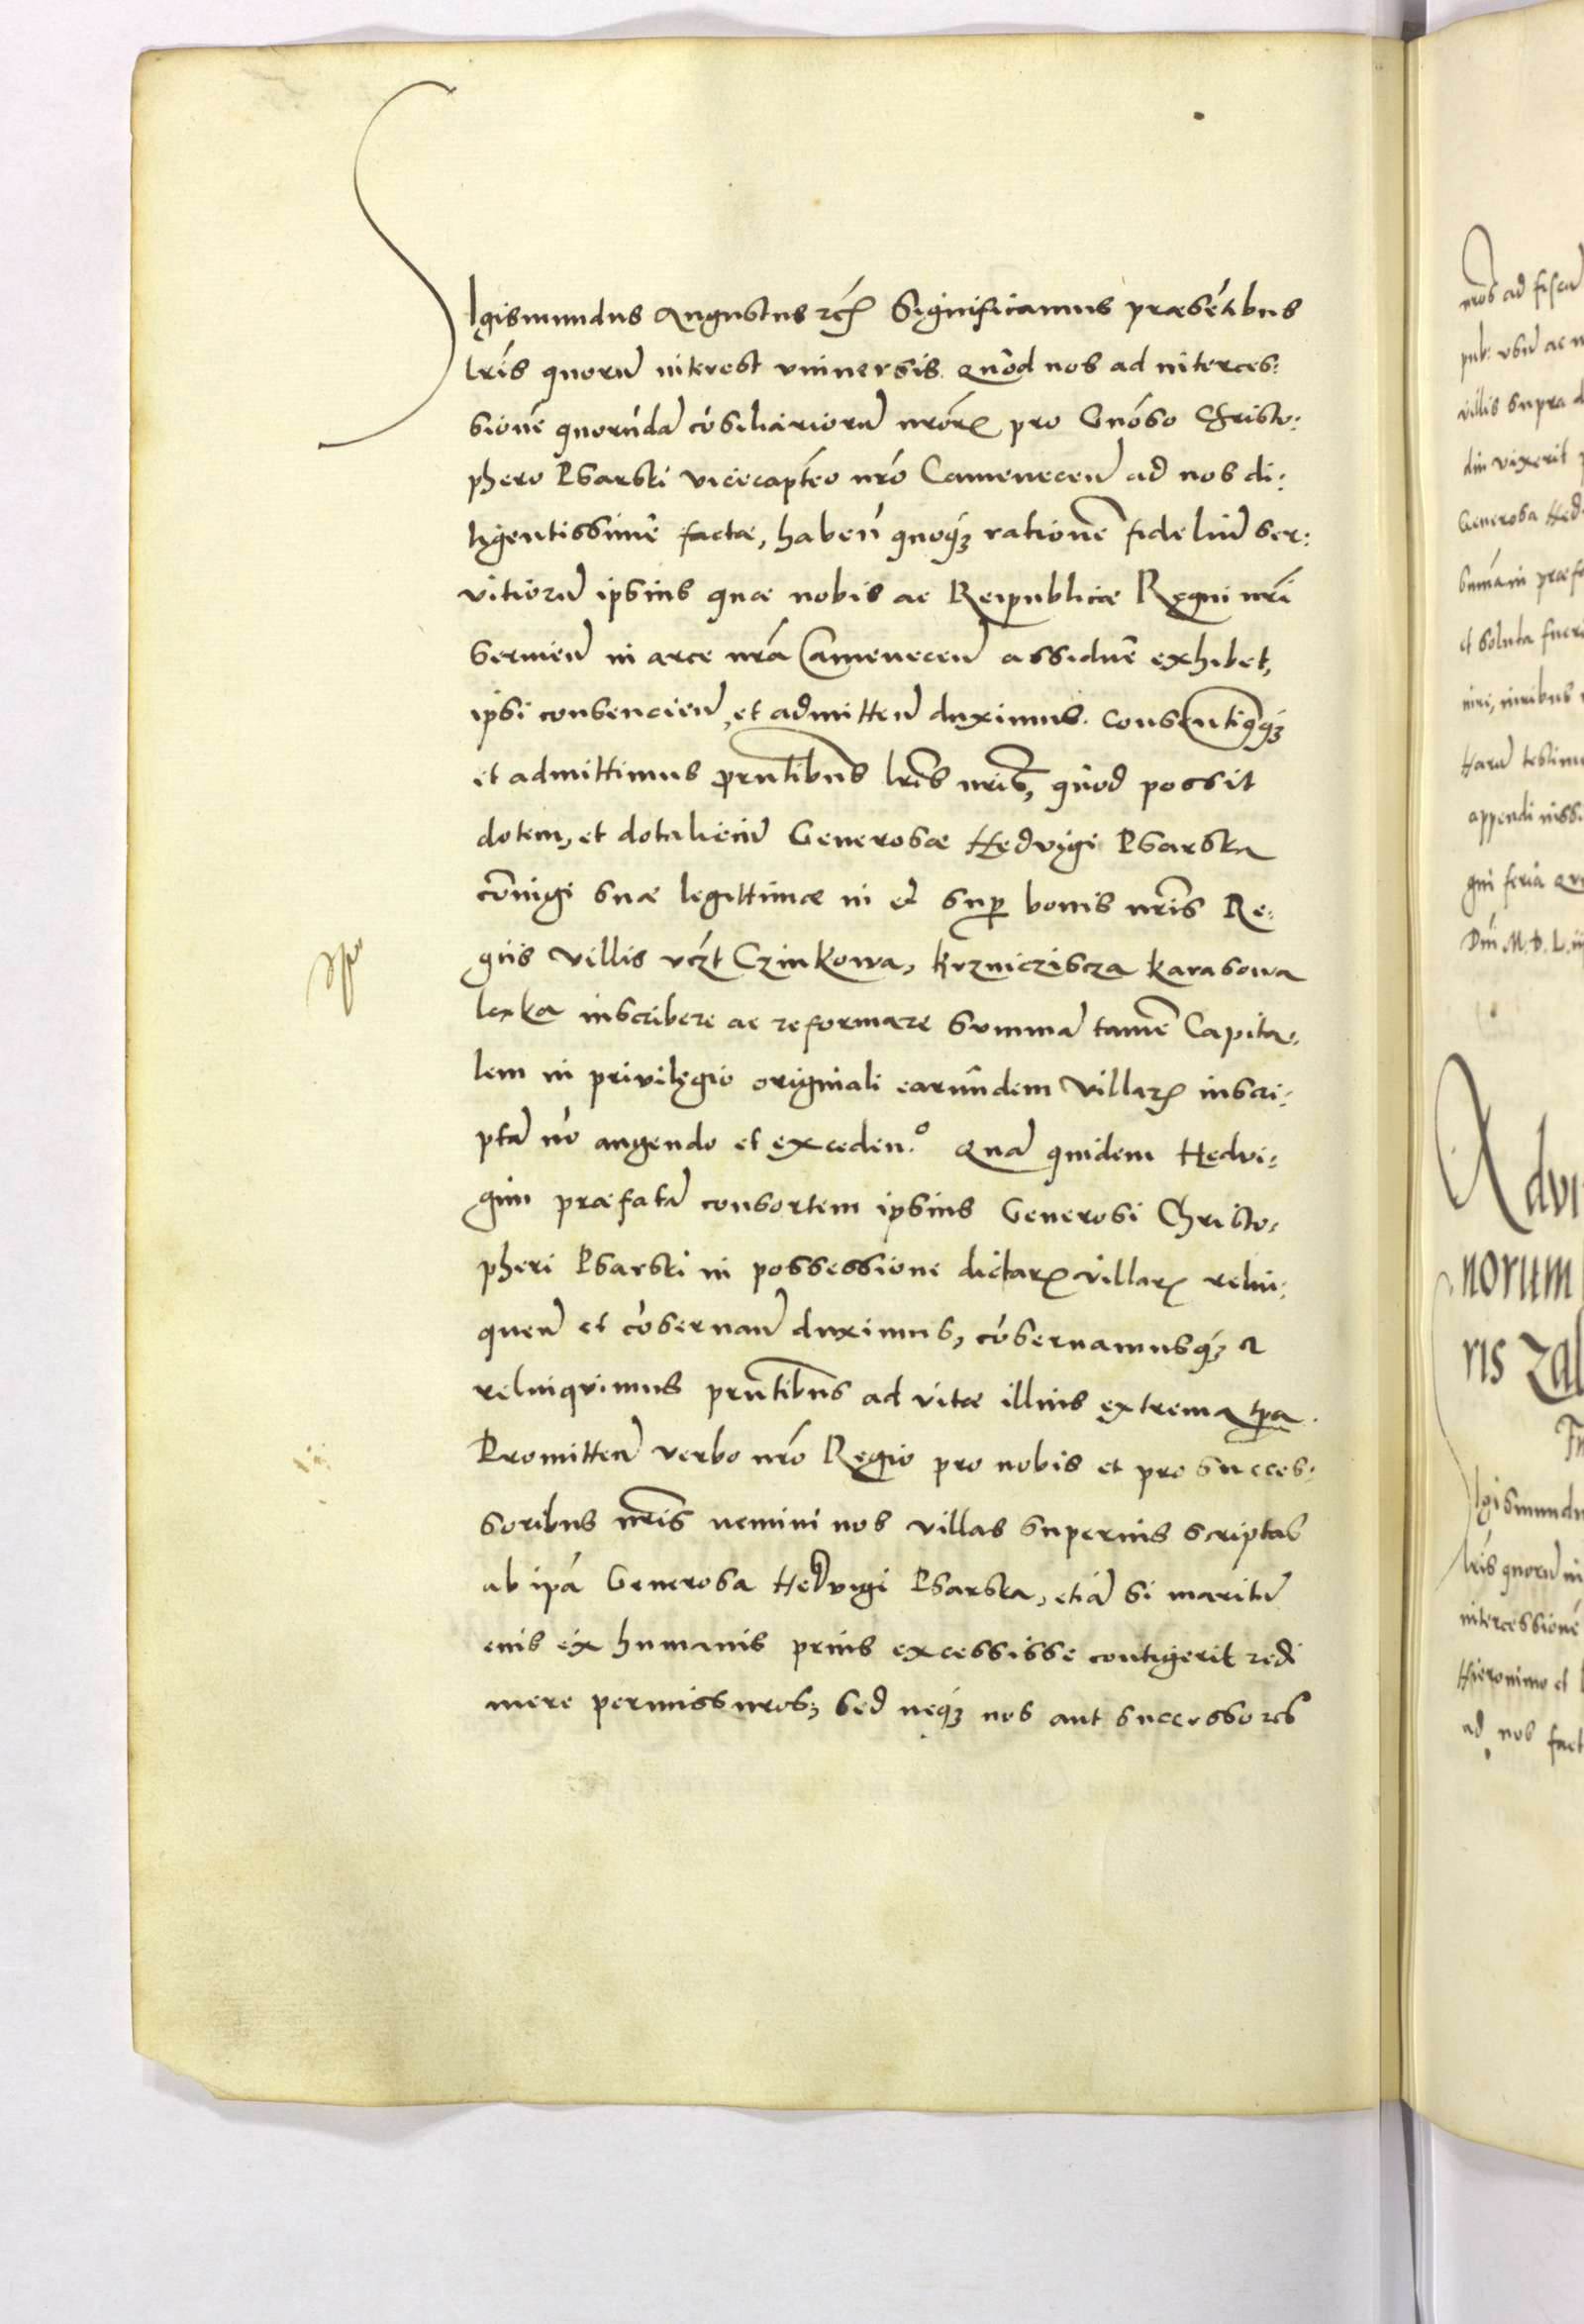 Sigismundus Augustus etc Significamus præsẽtibus
lr̃is quorũ interest universis. Quòd nos ad interces:
sionẽ quorũdã cõsiliariorũ nr̃orũ pro Gñoso Christo:
phero Psarski vicecaptẽo nr̃o Camenecen̄ ad nos di:
ligentissimè factæ, haben̄ quoqꝫ rationem̄ fideliũ ser:
vitiorũ ipsius quæ nobis ac Reipublicæ Regni nr̃i
servien̄ in arce nr̃a Camenecen̄ assiduè exhibet,
ipsi consencien̄, et admitten̄ duximus. Consentiq̃qꝫ
et admittimus prn̄tibus lr̃is nr̃is, quòd possit
dotem, et dotaliciũ Generosæ Hedvigi Psarska
cõiugi suæ legittimæ in et sup̱ bonis nr̃is Re:
giis villis vczt Czinkowa, krznicziscza karasowa
leska inscribere ac reformare summã tamẽ Capita:
lem in privilegio originali earundem villarꝝ inscri:
ptã nõ augendo et exceden.º Quã quidem Hedvi:
gim præfatã consortem ipsius Generosi Christo:
pheri Psarski in possessione dictarꝝ villarꝝ relin:
quen̄ et cõservan̄ duximus, cõservamusqꝫ et
relinquimus prn̄tibus ad vitæ illius extrema tp̱a.
Promitten̄ verbo nr̃o Regio pro nobis et pro succes:
soribus nr̃is nemini nos villas superius scriptas
ab ip̃a Generosa Hedvigi Psarska, etiã si maritũ
eius ex humanis prius excessisse contigerit redi
mere permissuros, sed neqꝫ nos aut successores
nr̃os ad
pub: usũ ac
villis supra
diu vixerit
Generosa Hed
summa in præf
et soluta fuer
iuribus
Harũ testim
appendi iussi
gni feria
Dñi M.D.L.
Advi
norum
ris Zal
Sigismundu
lr̃is quorũ in
intercessionẽ
Hieronimo et
ad nos fact